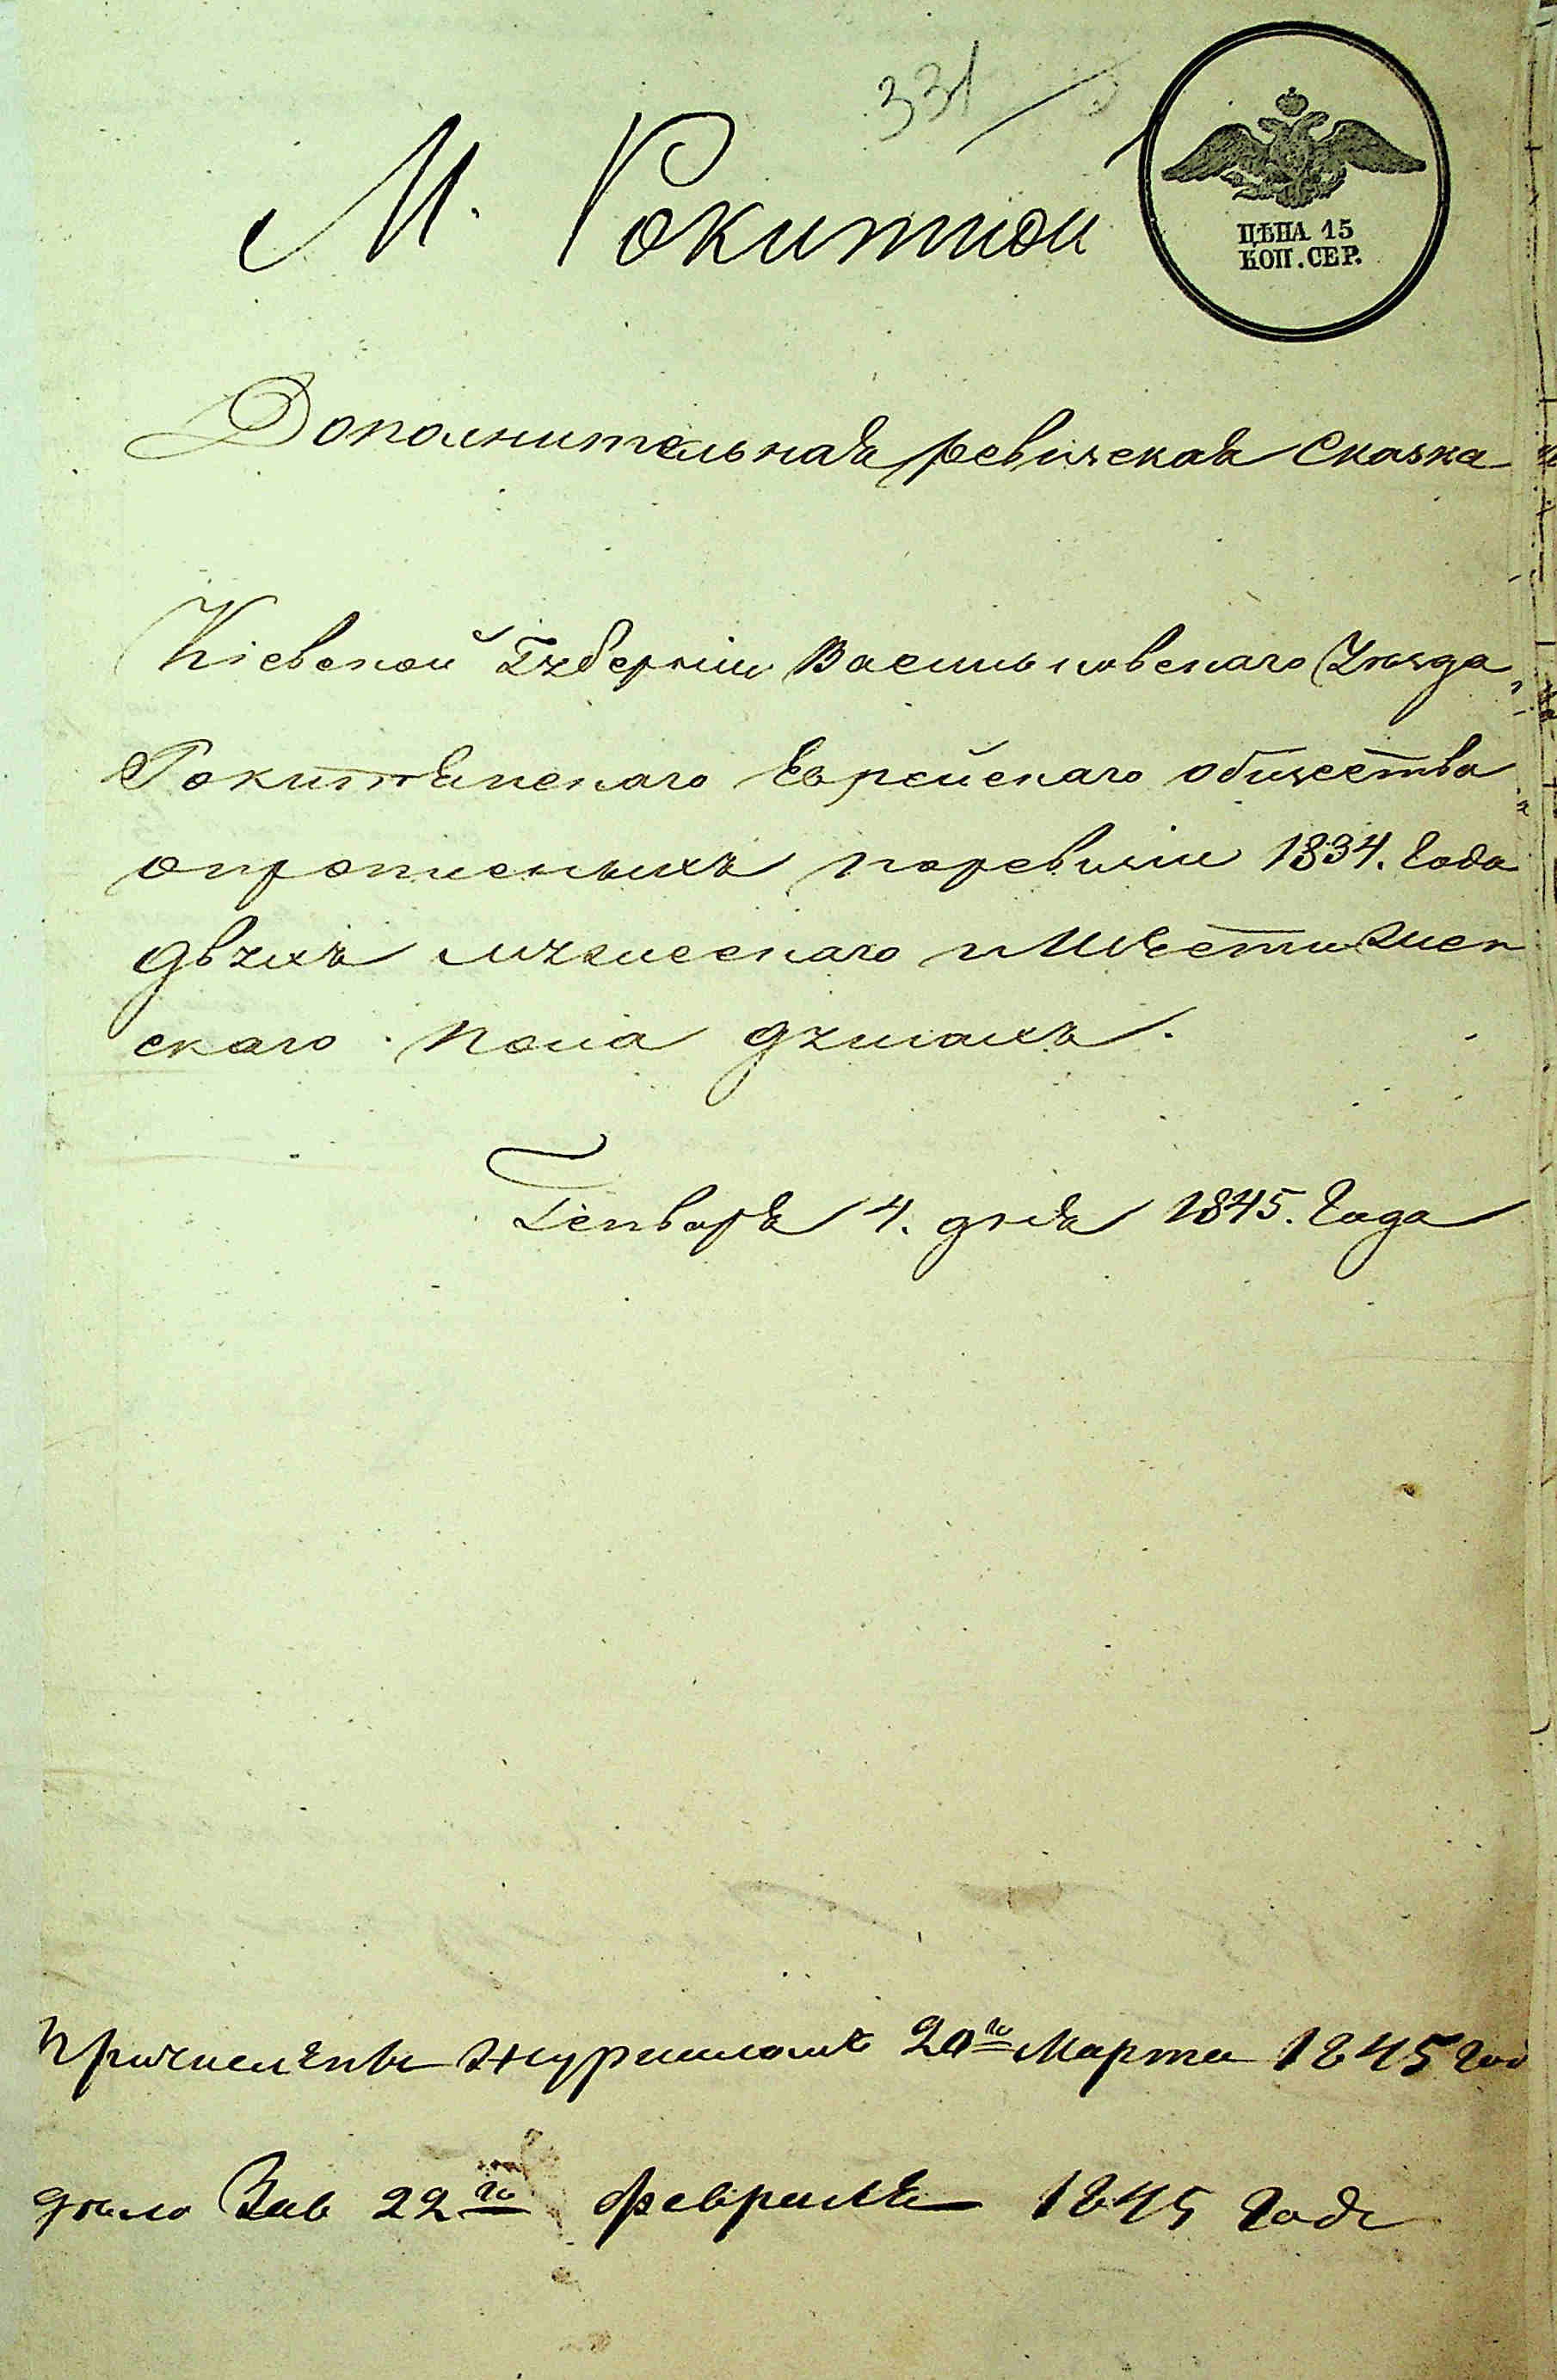 331
М. Рокитно
ЦѢНА 15
КОП. СЕР.
Дополнительная ревизская Сказка
Кіевской Губерніи Васильковскаго Уѣзда
Рокитянскаго Еврейскаго общества
опрописныхъ поревизіи 1834. Года
двухъ мужескаго и Шести Жен
скаго пола душахъ.
Генваря 4. дня 1845. Года
Причислены Журналомъ 20го Марта 1845 Год
дѣло Зав 22го февраля 1845 Года